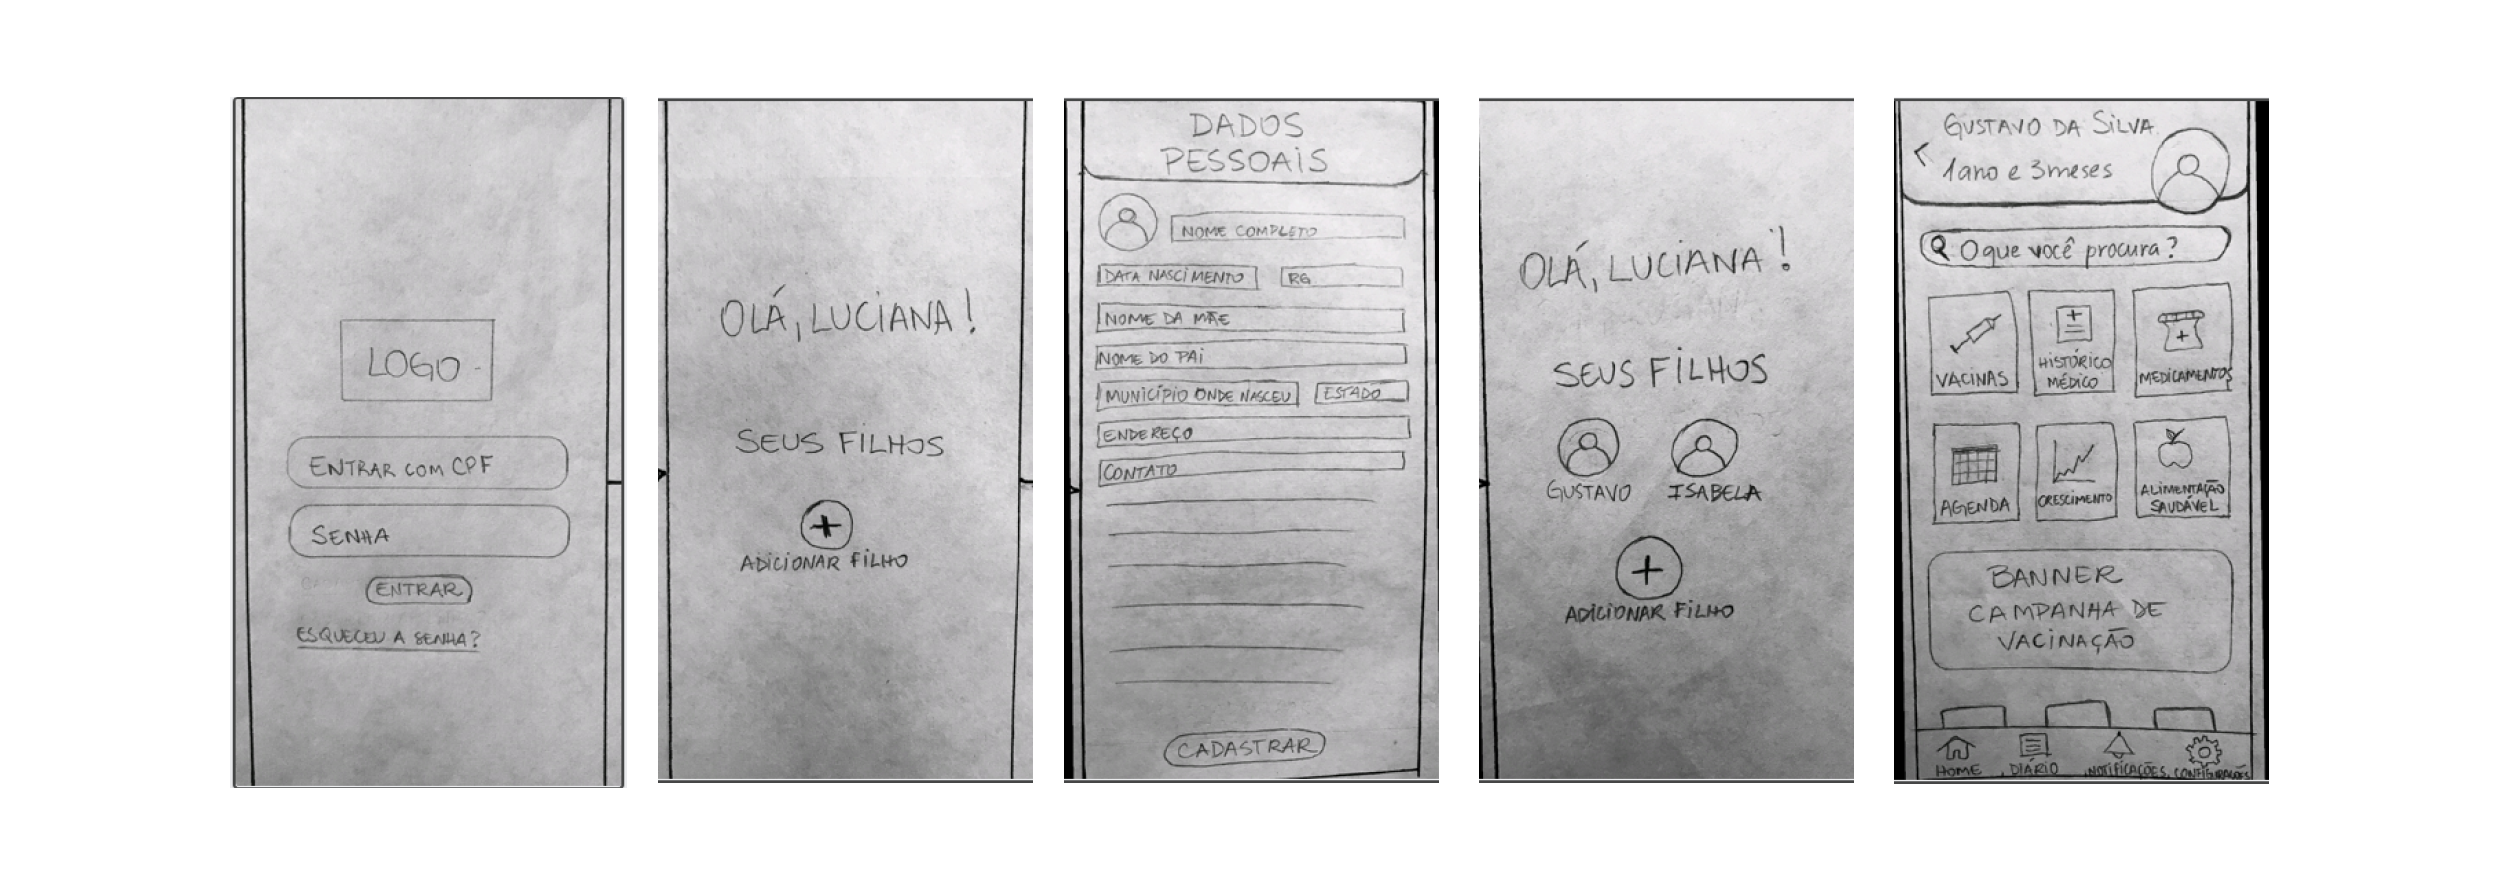 LOGO
ENTRAR COM CPF
SENHA
ENTRAR
ESQUECEU A SENHA?
OLÁ, LUCIANA!
SEUS FILHOS
+
ADICIONAR FILHO
DADOS
PESSOAIS
NOME COMPLETO
DATA NASCIMENTO
RG
NOME DA MÃE
NOME DO PAI
MUNICÍPIO ONDE NASCEU
ESTADO
ENDEREÇO
CONTATO
CADASTRAR
OLÁ, LUCIANA!
SEUS FILHOS
GUSTAVO
ISABELA
+
ADICIONAR FILHO
GUSTAVO DA SILVA
<
1 ano e 3 meses
O que você procura?
VACINAS
HISTÓRICO
MÉDICO
MEDICAMENTOS
AGENDA
CRESCIMENTO
ALIMENTAÇÃO
SAUDÁVEL
BANNER
CAMPANHA DE
VACINAÇÃO
HOME
DIÁRIO
NOTIFICAÇÕES
CONFIGURAÇÕES